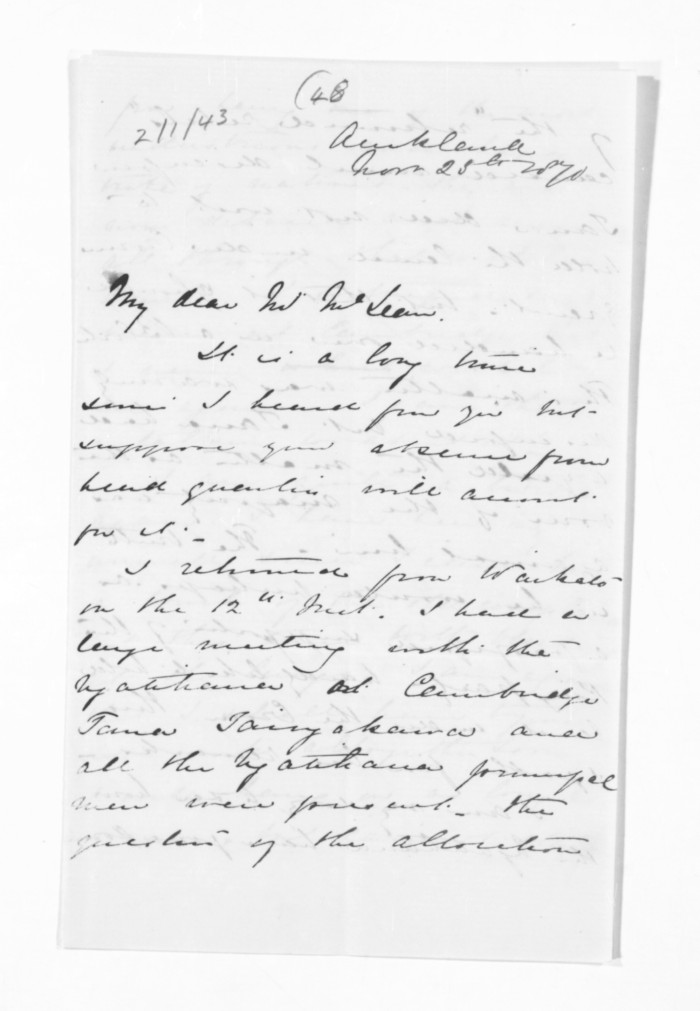 (48
2/1/43
Auckland
Novr 23rd 1870
My dear Mr McLean.
It is a long time
since I heard from you but
suppose your absence from
head quarters will account
for it. _
I returned from Waikato
on the 12th Inst. I had a
large meeting with the
Ngatihaua at Cambridge
Tana Taingakawa and
all the Ngatihaua principal
men were present _ the
question of the allocation